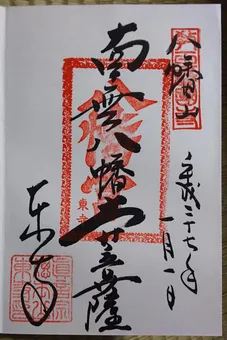 八幡山
平成二十七年
一月一日
南無八幡大菩薩
東寺
東寺